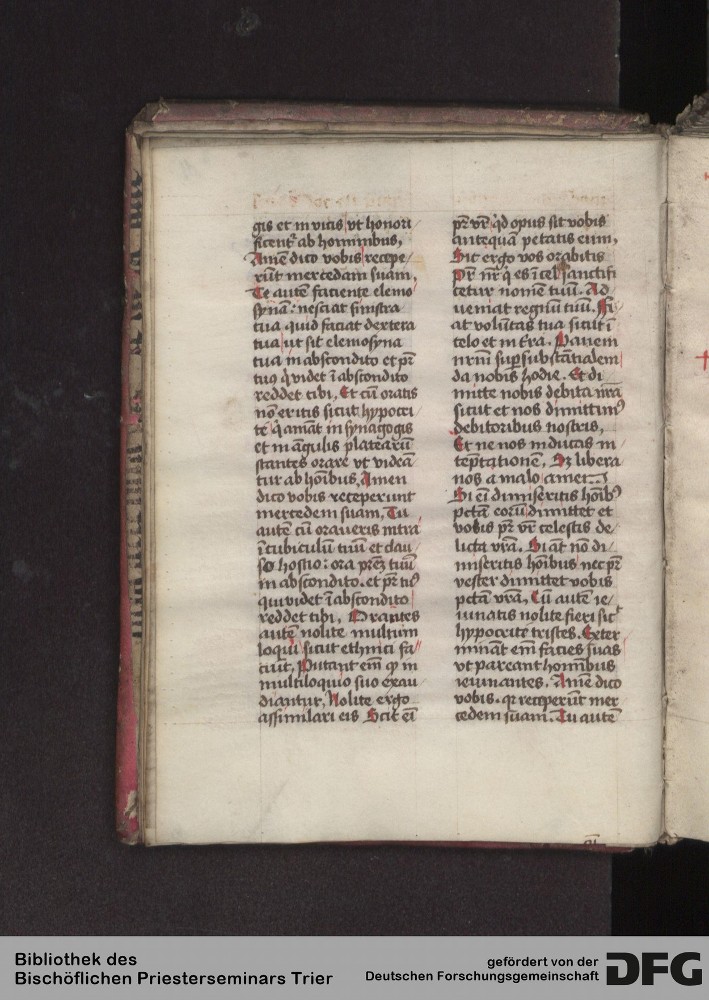 gis et in vicis vt honori
ficent᷑ ab hominibus,
Amē dico vobis recepe
rūt mercedam suam,
Te autē faciente elemo
synā: nesciat sinistra
tua quid faciat dextera
tua ut sit elemosyna
tua in abscondito et pr̄
tuꝰ q̇ videt ī abscondito
reddet tibi, Et cū oratis
nō eritis sicut hypocri
te q̇ amāt in synagogis
et in āgulis platearū
stantes orare vt videā
tur ab hoībus, Amen
dico vobis receperunt
mercedem suam, Tu
autē cū oraueris intra
ī cubiculū tuū et clau
so hostio: ora prēz tuū
in abscondito. et pr̄ tuꝰ
qui videt ī abscondito
reddet tibi, Orantes
autē nolite multum
loqui sicut ethnici fa
ciūt, Putant em̄ ꝙ in
multiloquio suo exau
diantur, Nolite ergo
assimilari eis Scit eī
pr̄ vr̄ q̇d opus sit vobis
antequā petatis eum,
Sic ergo vos orabitis
Pr̄ nr̄ q̇ es ī cel sanctifi
cetur nomē tuū. Ad
ueniat regnū tuū. Fi
at volūtas tua sicut ī
celo et in t̄ra. Panem
nr̄m suꝑsubstātialem
da nobis hodie. Et di
mitte nobis debita nr̄a
sicut et nos dimittimꝰ
debitoribus nostris,
Et ne nos inducas in
tēptationē, Sz libera
nos a malo amen
Si eī dimiseritis hoībꝰ
pctā eorū dimittet et
vobis pr̄ vr̄ celestis de
licta vr̄a. Si aūt nō di
miseritis hoībus nec pr̄
vester dimittet vobis
pctā vr̄a, Cū autē ie
iunatis nolite fieri sic̄
hypocrite tristes. Exter
minant em̄ facies suas
vt pareant hominibus
ieiunantes. Amē dico
vobis. qr receperūt mer
cedem suam. Tu autē
Bibliothek des
Bischöflichen Priesterseminars Trier
gefördert von der
Deutschen Forschungsgemeinschaft
DFG